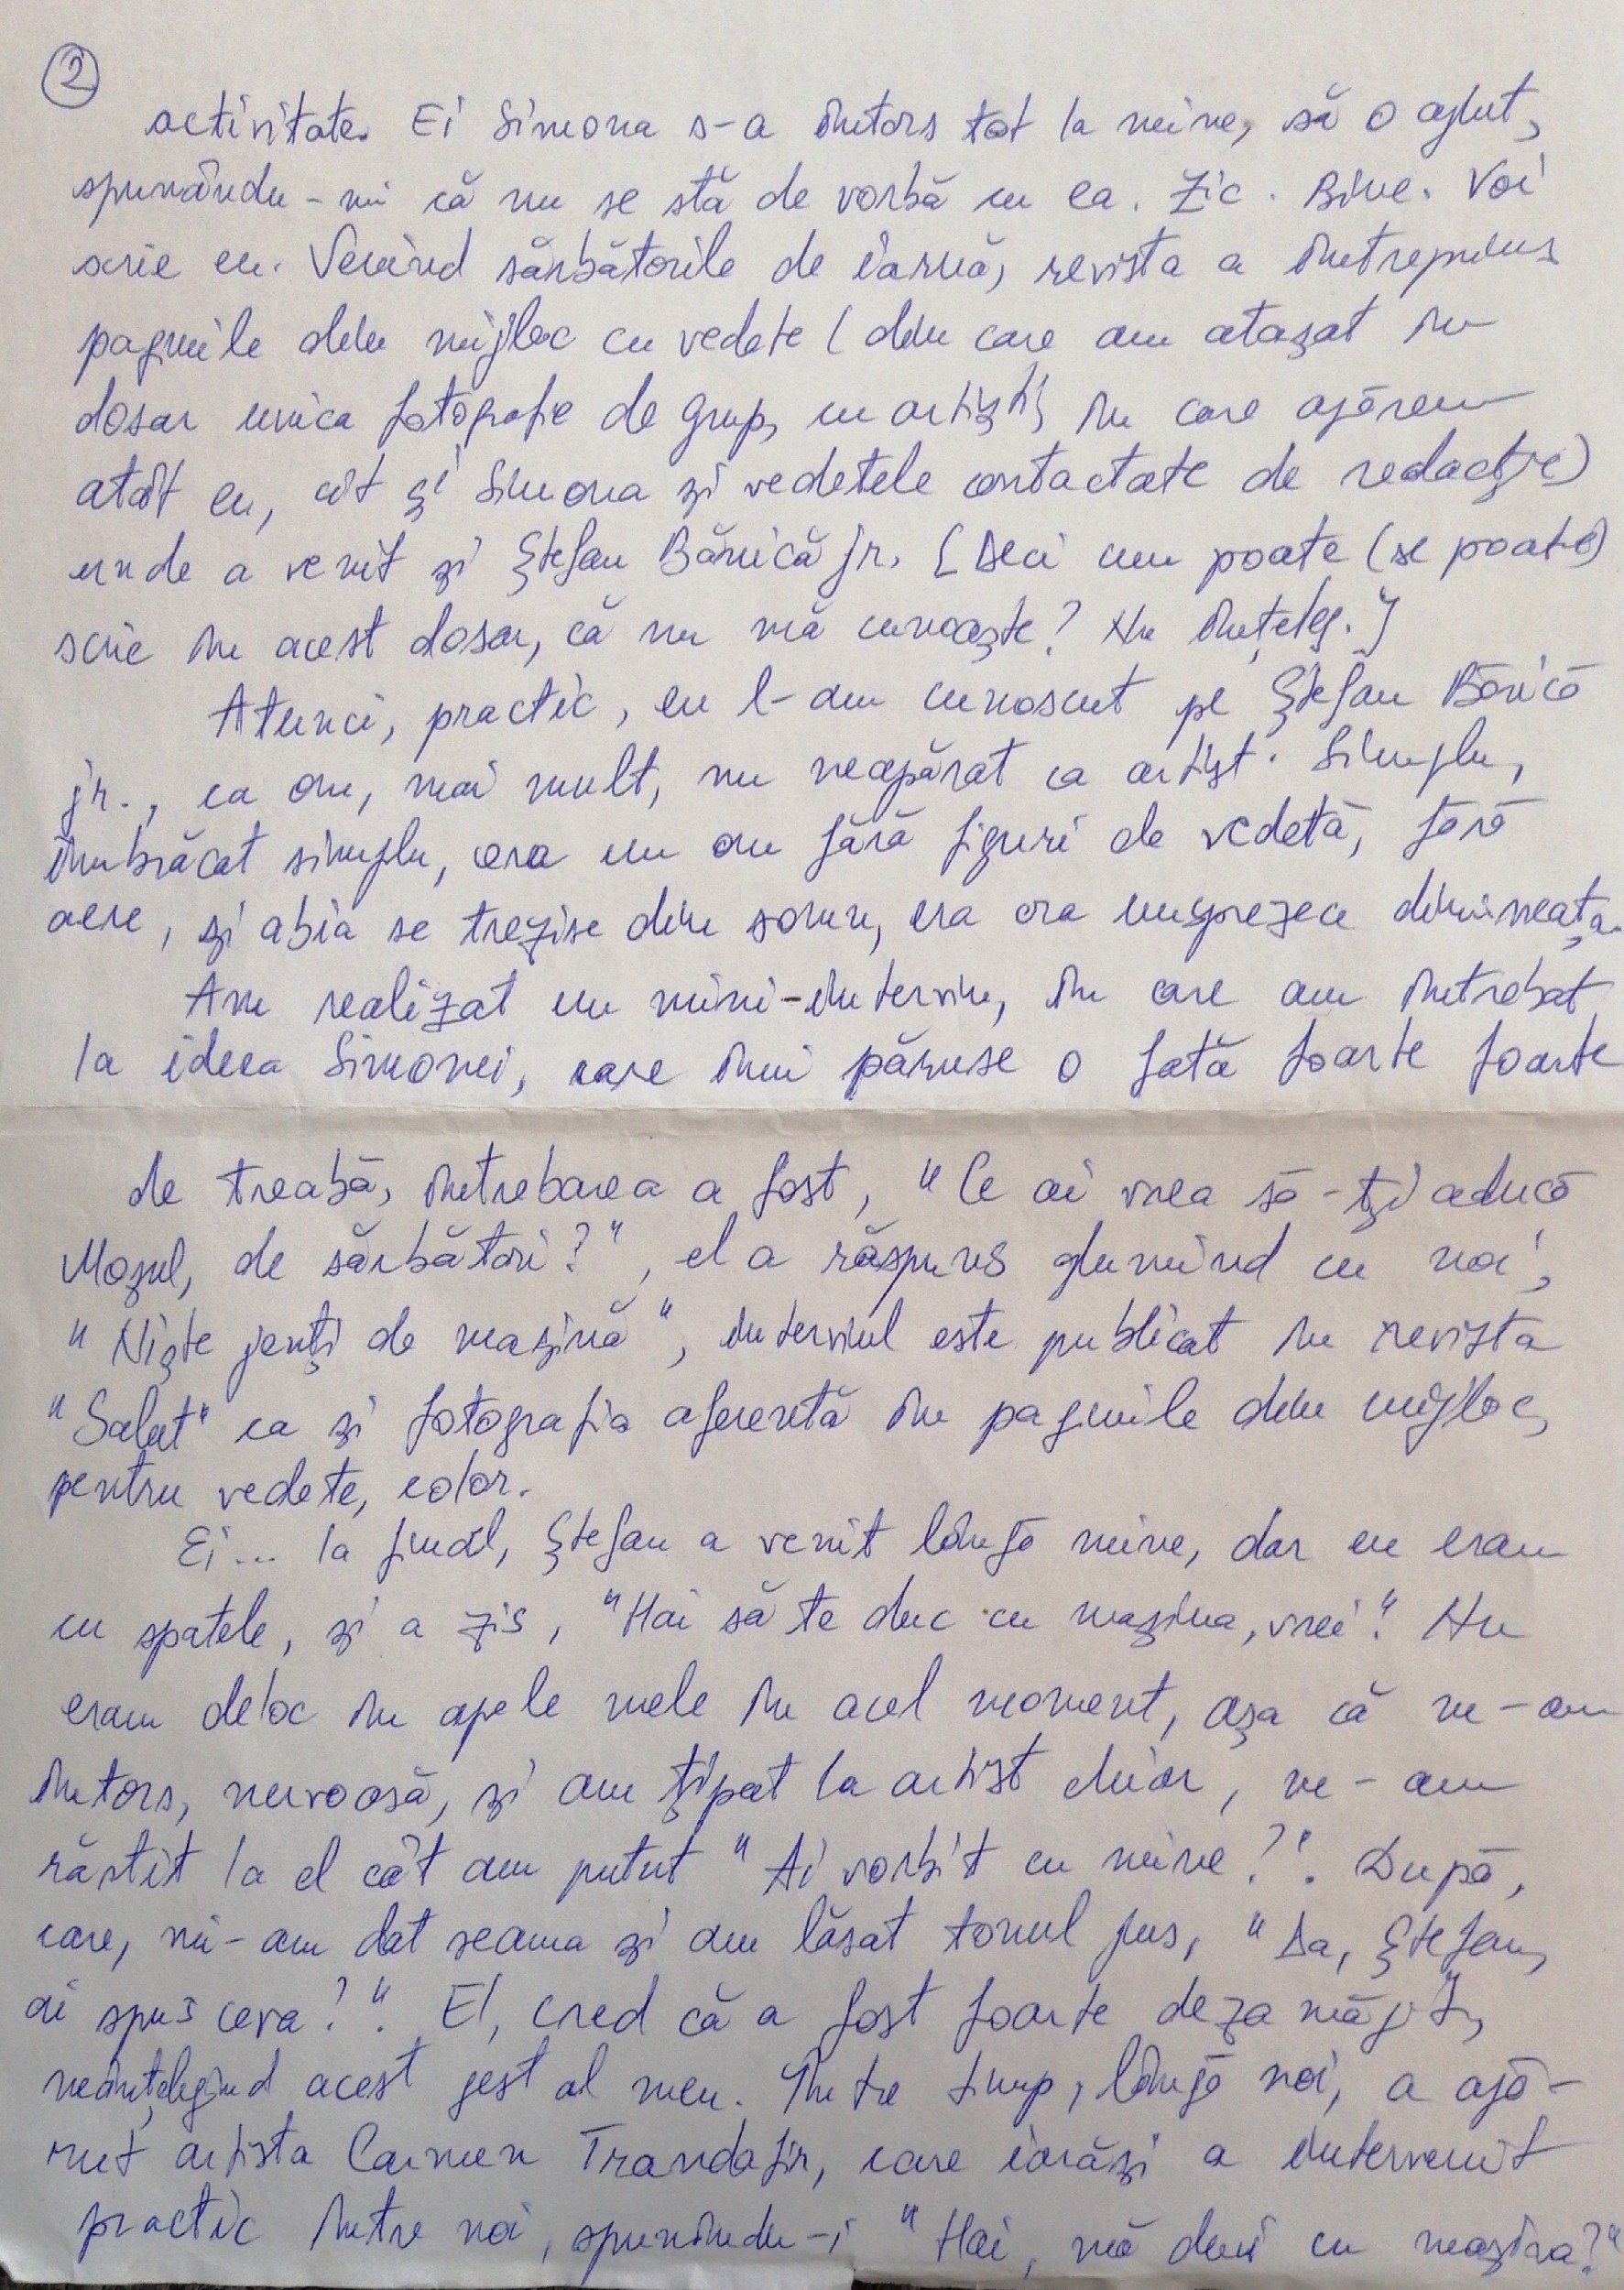 ②
activitate. Ei Simona s-a întors tot la mine, să o ajut,
spunându-mi că nu se stă de vorbă cu ea. Zic. Bine. Voi
scrie eu. Venind sărbătorile de iarnă, revista a întreprins
paginile din mijloc cu vedete (din care am atașat în
dosar unica fotografie de grup, cu artiști, în care apărem
atât eu, cât și Simona și vedetele contactate de redacție)
unde a venit și Ștefan Bănică jr. [Deci cum poate (se poate)
scrie în acest dosar, că nu mă cunoaște? Nu înțeleg.]
Atunci, practic, eu l-am cunoscut pe Ștefan Bănică
jr., ca om, mai mult, nu neapărat ca artist. Simplu,
îmbrăcat simplu, era un om fără figuri de vedetă, fără
aere, și abia se trezise din somn, era ora unsprezece dimineața.
Am realizat un mini-interviu, în care am întrebat,
la ideea Simonei, care îmi păruse o fată foarte foarte
de treabă, întrebarea a fost, "Ce ai vrea să-ți aducă
Moșul, de sărbători?", el a răspuns glumind cu noi,
"Niște jenți de mașină", interviul este publicat în revista
"Salut" ca și fotografia aferentă în paginile din mijloc,
pentru vedete, color.
Ei... la final, Ștefan a venit lângă mine, dar eu eram
cu spatele, și a zis, "Hai să te duc cu mașina, vrei". Nu
eram deloc în apele mele în acel moment, așa că m-am
întors, nervoasă, și am țipat la artist chiar, m-am
răstit la el cât am putut "Ai vorbit cu mine?". După,
care, mi-am dat seama și am lăsat tonul jos, "Da, Ștefan,
ai spus ceva?". El, cred că a fost foarte dezamăgit,
neînțelegind acest gest al meu. Între timp, lângă noi, a apă-
rut artista Carmen Trandafir, care iarăși a intervenit
practic între noi, spunîndu-i "Hai, mă duci cu mașina?"